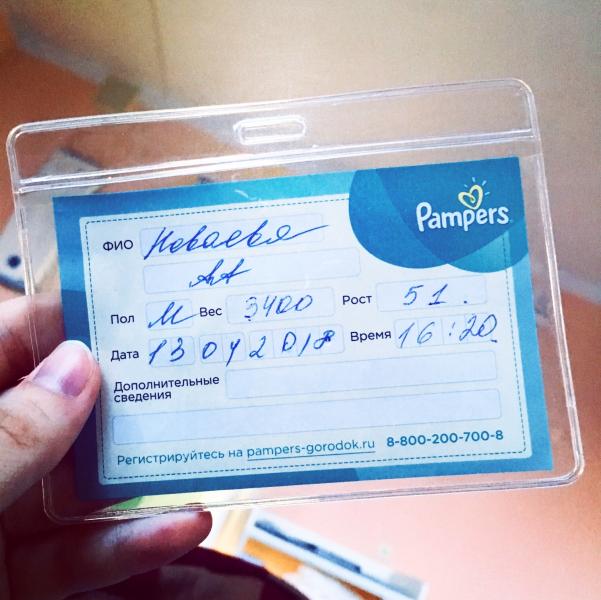 Pampers
ФИО Новаевя
АА
Пол М Вес 3400 Рост 51.
Дата 13 04 2018 Время 16:20
Дополнительные
сведения
Регистрируйтесь на pampers-gorodok.ru 8-800-200-700-8